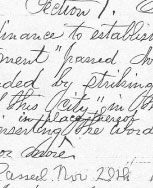 Section 1.
inance to establis
ment" passed
ded by striking
"this City" in th
in place thereof
inserting the word
or
Passed Nov 20th